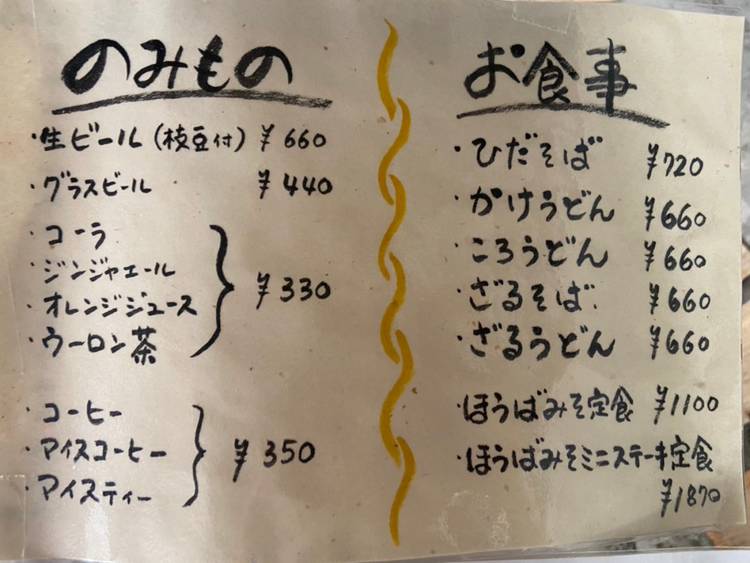 のみもの
・生ビール(枝豆付) ¥660
・グラスビール ¥440
・コーラ
・ジンジャエール
・オレンジジュース
・ウーロン茶
¥330
・コーヒー
・アイスコーヒー
・アイスティー
¥350
お食事
・ひだそば ¥720
・かけうどん ¥660
・ころうどん ¥660
・ざるそば ¥660
・ざるうどん ¥660
・ほうばみそ定食 ¥1100
・ほうばみそミニステーキ定食
¥1870